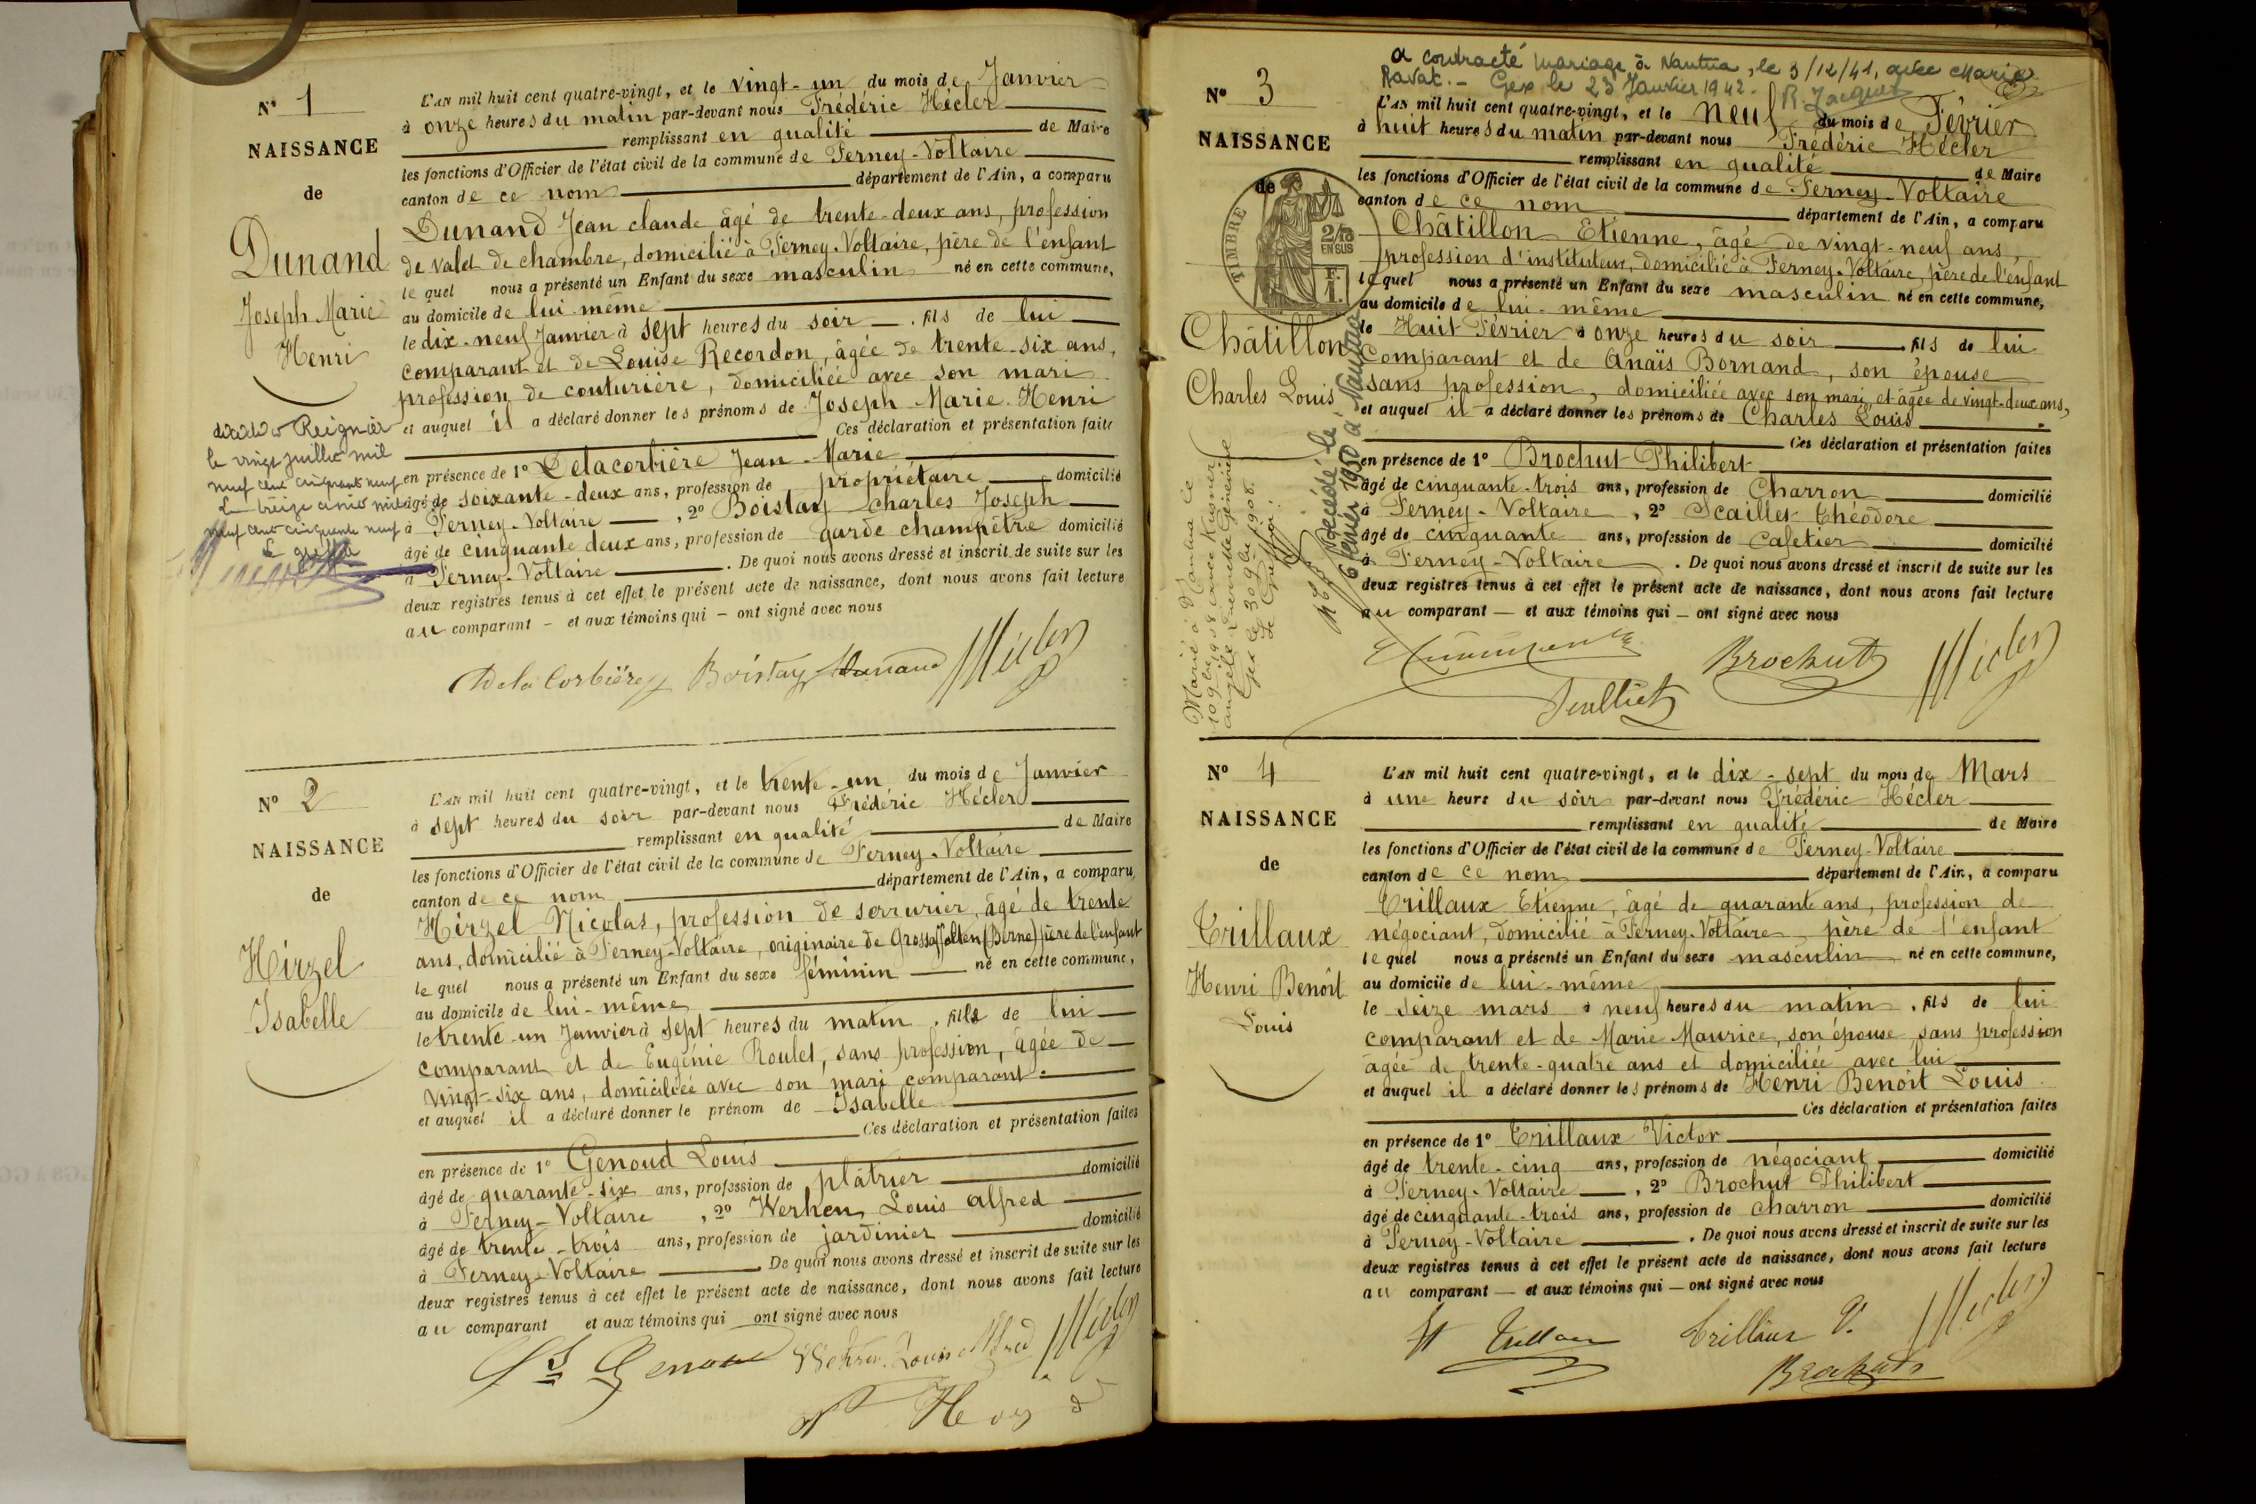 N° 1
NAISSANCE
de
Dunand
Joseph Marie
Henri
L'AN mil huit cent quatre-vingt, et le vingt-un du mois de Janvier
à onze heures du matin par-devant nous Frédéric Hécler
remplissant en qualité de Maire
les fonctions d'Officier de l'état civil de la commune de Ferney-Voltaire
canton de ce nom département de l'Ain, a comparu
Dunand Jean claude âgé de trente-deux ans, profession
de valet de chambre, domicilié à Ferney-Voltaire, père de l'enfant
lequel nous a présenté un Enfant du sexe masculin né en cette commune,
au domicile de lui-même
le dix-neuf Janvier à sept heures du soir . fils de lui
comparant et de Louise Recordon, âgée de trente-six ans,
profession de couturière, domiciliée avec son mari
et auquel il a déclaré donner les prénoms de Joseph Marie Henri
Ces déclaration et présentation faite
en présence de 1° Delacorbière Jean-Marie
âgé de soixante-deux ans, profession de propriétaire domicilié
à Ferney-Voltaire , 2° Boistay charles Joseph
âgé de cinquante deux ans, profession de garde champêtre domicilié
à Ferney-Voltaire . De quoi nous avons dressé et inscrit de suite sur les
deux registres tenus à cet effet le présent acte de naissance, dont nous avons fait lecture
au comparant - et aux témoins qui - ont signé avec nous
Delacorbière Boistay Dunand Hécler
Reignier
le vingt juillet mil
neuf cent cinquante neuf
Le treize août mil
neuf cent cinquante neuf
Le greffier
N° 2
NAISSANCE
de
Hirzel
Isabelle
L'AN mil huit cent quatre-vingt, et le trente-un du mois de Janvier
à sept heures du soir par-devant nous Frédéric Hécler
remplissant en qualité de Maire
les fonctions d'Officier de l'état civil de la commune de Ferney-Voltaire
canton de ce nom département de l'Ain, a comparu
Hirzel Nicolas, profession de serrurier, âgé de trente
ans, domicilié à Ferney-Voltaire, originaire de Grossaffolten (Berne) père de l'enfant
lequel nous a présenté un Enfant du sexe féminin né en cette commune,
au domicile de lui-même
le trente-un Janvier à sept heures du matin . fille de lui
comparant et de Eugénie Roulet, sans profession, âgée de
vingt-six ans, domiciliée avec son mari comparant.
et auquel il a déclaré donner le prénom de Isabelle
Ces déclaration et présentation faites
en présence de 1° Genoud Louis
âgé de quarante-six ans, profession de plâtrier domicilié
à Ferney-Voltaire , 2° Werhen Louis alfred
âgé de trente-trois ans, profession de jardinier domicilié
à Ferney-Voltaire . De quoi nous avons dressé et inscrit de suite sur les
deux registres tenus à cet effet le présent acte de naissance, dont nous avons fait lecture
au comparant et aux témoins qui ont signé avec nous
Ls Genoud Louis Alfred Hécler
a contracté mariage à Nantua, le 3/12/41, avec Marie
Ravat. - Gex le 23 Janvier 1942.
R. Jacquet
N° 3
NAISSANCE
de
TIMBRE
2/10
EN SUS
Châtillon
Charles Louis
L'AN mil huit cent quatre-vingt, et le neuf du mois de Février
à huit heures du matin par-devant nous Frédéric Hécler
remplissant en qualité de Maire
les fonctions d'Officier de l'état civil de la commune de Ferney-Voltaire
canton de ce nom département de l'Ain, a comparu
Châtillon Etienne, âgé de vingt-neuf ans,
profession d'instituteur, domicilié à Ferney-Voltaire, père de l'enfant
lequel nous a présenté un Enfant du sexe masculin né en cette commune,
au domicile de lui-même
le Huit Février à onze heures du soir . fils de lui
comparant et de Anaïs Bornand, son épouse
sans profession, domiciliée avec son mari et âgée de vingt-deux ans,
et auquel il a déclaré donner les prénoms de Charles Louis
Ces déclaration et présentation faites
en présence de 1° Brochut Philibert
âgé de cinquante-trois ans, profession de Charron domicilié
à Ferney-Voltaire , 2° Scaillet Théodore
âgé de cinquante ans, profession de Cafetier domicilié
à Ferney-Voltaire . De quoi nous avons dressé et inscrit de suite sur les
deux registres tenus à cet effet le présent acte de naissance, dont nous avons fait lecture
au comparant — et aux témoins qui — ont signé avec nous
Brochut Hécler
Marié à
10 9bre 1908 avec
Angèle
Gex le 30 9bre 1908.
Décédé le
6 février 1950 à Nantua
N° 4
NAISSANCE
de
Trillaux
Henri Benoît
Louis
L'AN mil huit cent quatre-vingt, et le dix-sept du mois de Mars
à une heure du soir par-devant nous Frédéric Hécler
remplissant en qualité de Maire
les fonctions d'Officier de l'état civil de la commune de Ferney-Voltaire
canton de ce nom département de l'Ain, a comparu
Trillaux Etienne, âgé de quarante ans, profession de
négociant, domicilié à Ferney-Voltaire père de l'enfant
lequel nous a présenté un Enfant du sexe masculin né en cette commune,
au domicile de lui-même
le seize mars à neuf heures du matin . fils de lui
comparant et de Marie Maurice, son épouse sans profession
âgée de trente-quatre ans et domiciliée avec lui
et auquel il a déclaré donner les prénoms de Henri Benoît Louis
Ces déclaration et présentation faites
en présence de 1° Trillaux Victor
âgé de trente-cinq ans, profession de négociant domicilié
à Ferney-Voltaire , 2° Brochut Philibert
âgé de cinquante-trois ans, profession de charron domicilié
à Ferney-Voltaire . De quoi nous avons dressé et inscrit de suite sur les
deux registres tenus à cet effet le présent acte de naissance, dont nous avons fait lecture
au comparant — et aux témoins qui — ont signé avec nous
Trillaux V. Hécler
Brochut